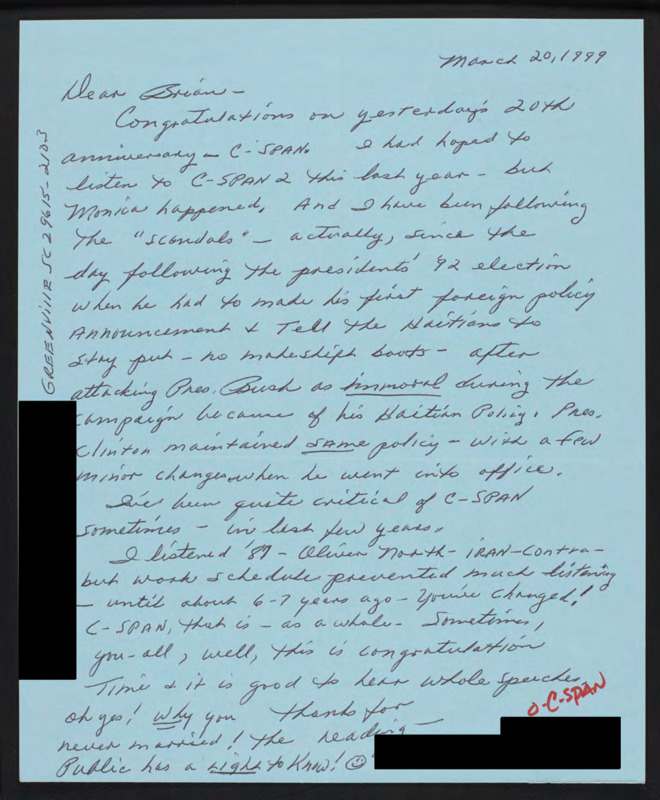 March 20, 1999
Dear Brian -
Congratulations on yesterday's 20th
anniversary - C-SPAN. I had hoped to
listen to C-SPAN 2 this last year - but
Monica happened. And I have been following
the "scandals" - actually, since the
day following the presidents' '92 election
when he had to made his first foreign policy
Announcement & Tell the Haitians to
stay put - no makeshift boats - after
attacking Pres. Bush as immoral during the
campaign because of his Haitian Policy. Pres.
Clinton maintained same policy - with a few
minor changes when he went into office.
I've been quite critical of C-SPAN
sometimes - in last few years.
I listened '87 - Oliver North - IRAN-Contra -
but work schedule prevented much listening
- until about 6-7 years ago - You've changed!
C-SPAN, that is - as a whole - Sometimes,
you-all, well, this is congratulation
Time & it is good to hear whole speeches
oh yes! Why you thanks for
never married! The reading
Public has a right to Know! ☺
GREENVILLE SC 29615-2103
O-C-SPAN